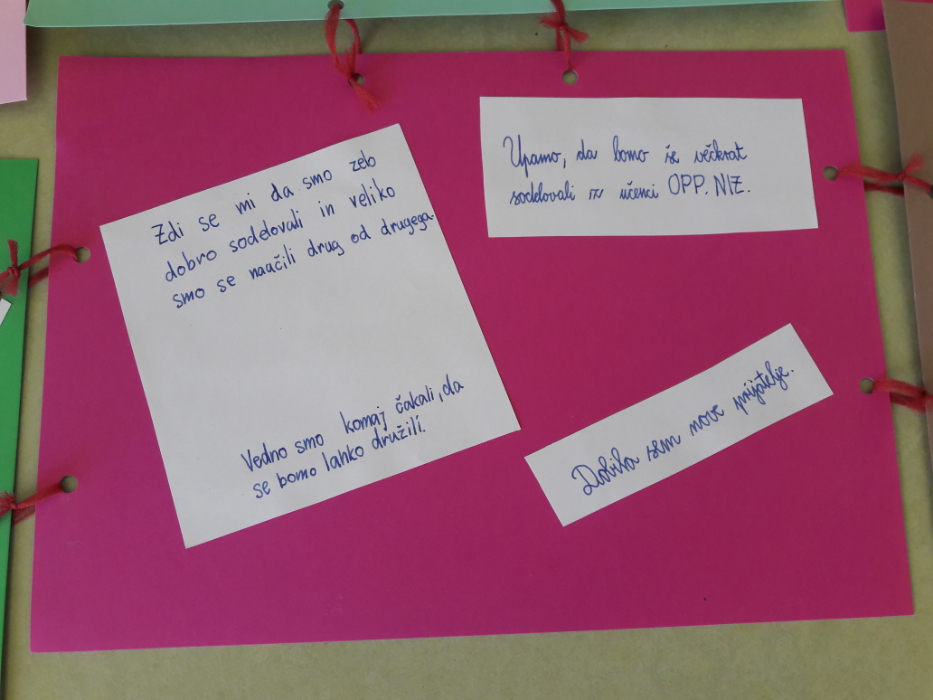 Zdi se mi da smo zelo
dobro sodelovali in veliko
smo se naačili drug od drugega.
Vedno smo komaj čakali, da
se bomo lahko družili.
Upamo, da bomo še večkrat
sodelovali z učenci OPP. NIZ.
Dobila sem nove prijatelje.